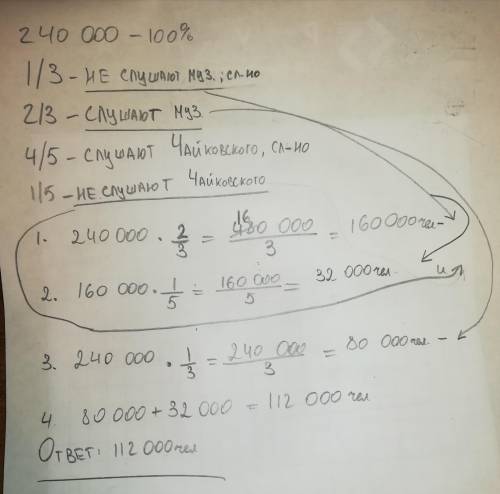 240 000 – 100%
1/3 – НЕ СЛУШАЮТ МУЗ., СЛ-НО
2/3 – СЛУШАЮТ МУЗ.
4/5 – СЛУШАЮТ ЧАЙКОВСКОГО, СЛ-НО
1/5 – НЕ СЛУШАЮТ ЧАЙКОВСКОГО
1. 240 000 · 2/3 = 480 000/3 = 160 000 чел –
2. 160 000 · 1/5 = 160 000/5 = 32 000 чел.
3. 240 000 · 1/3 = 240 000/3 = 80 000 чел. –
4. 80 000 + 32 000 = 112 000 чел
ОТВЕТ: 112 000 чел